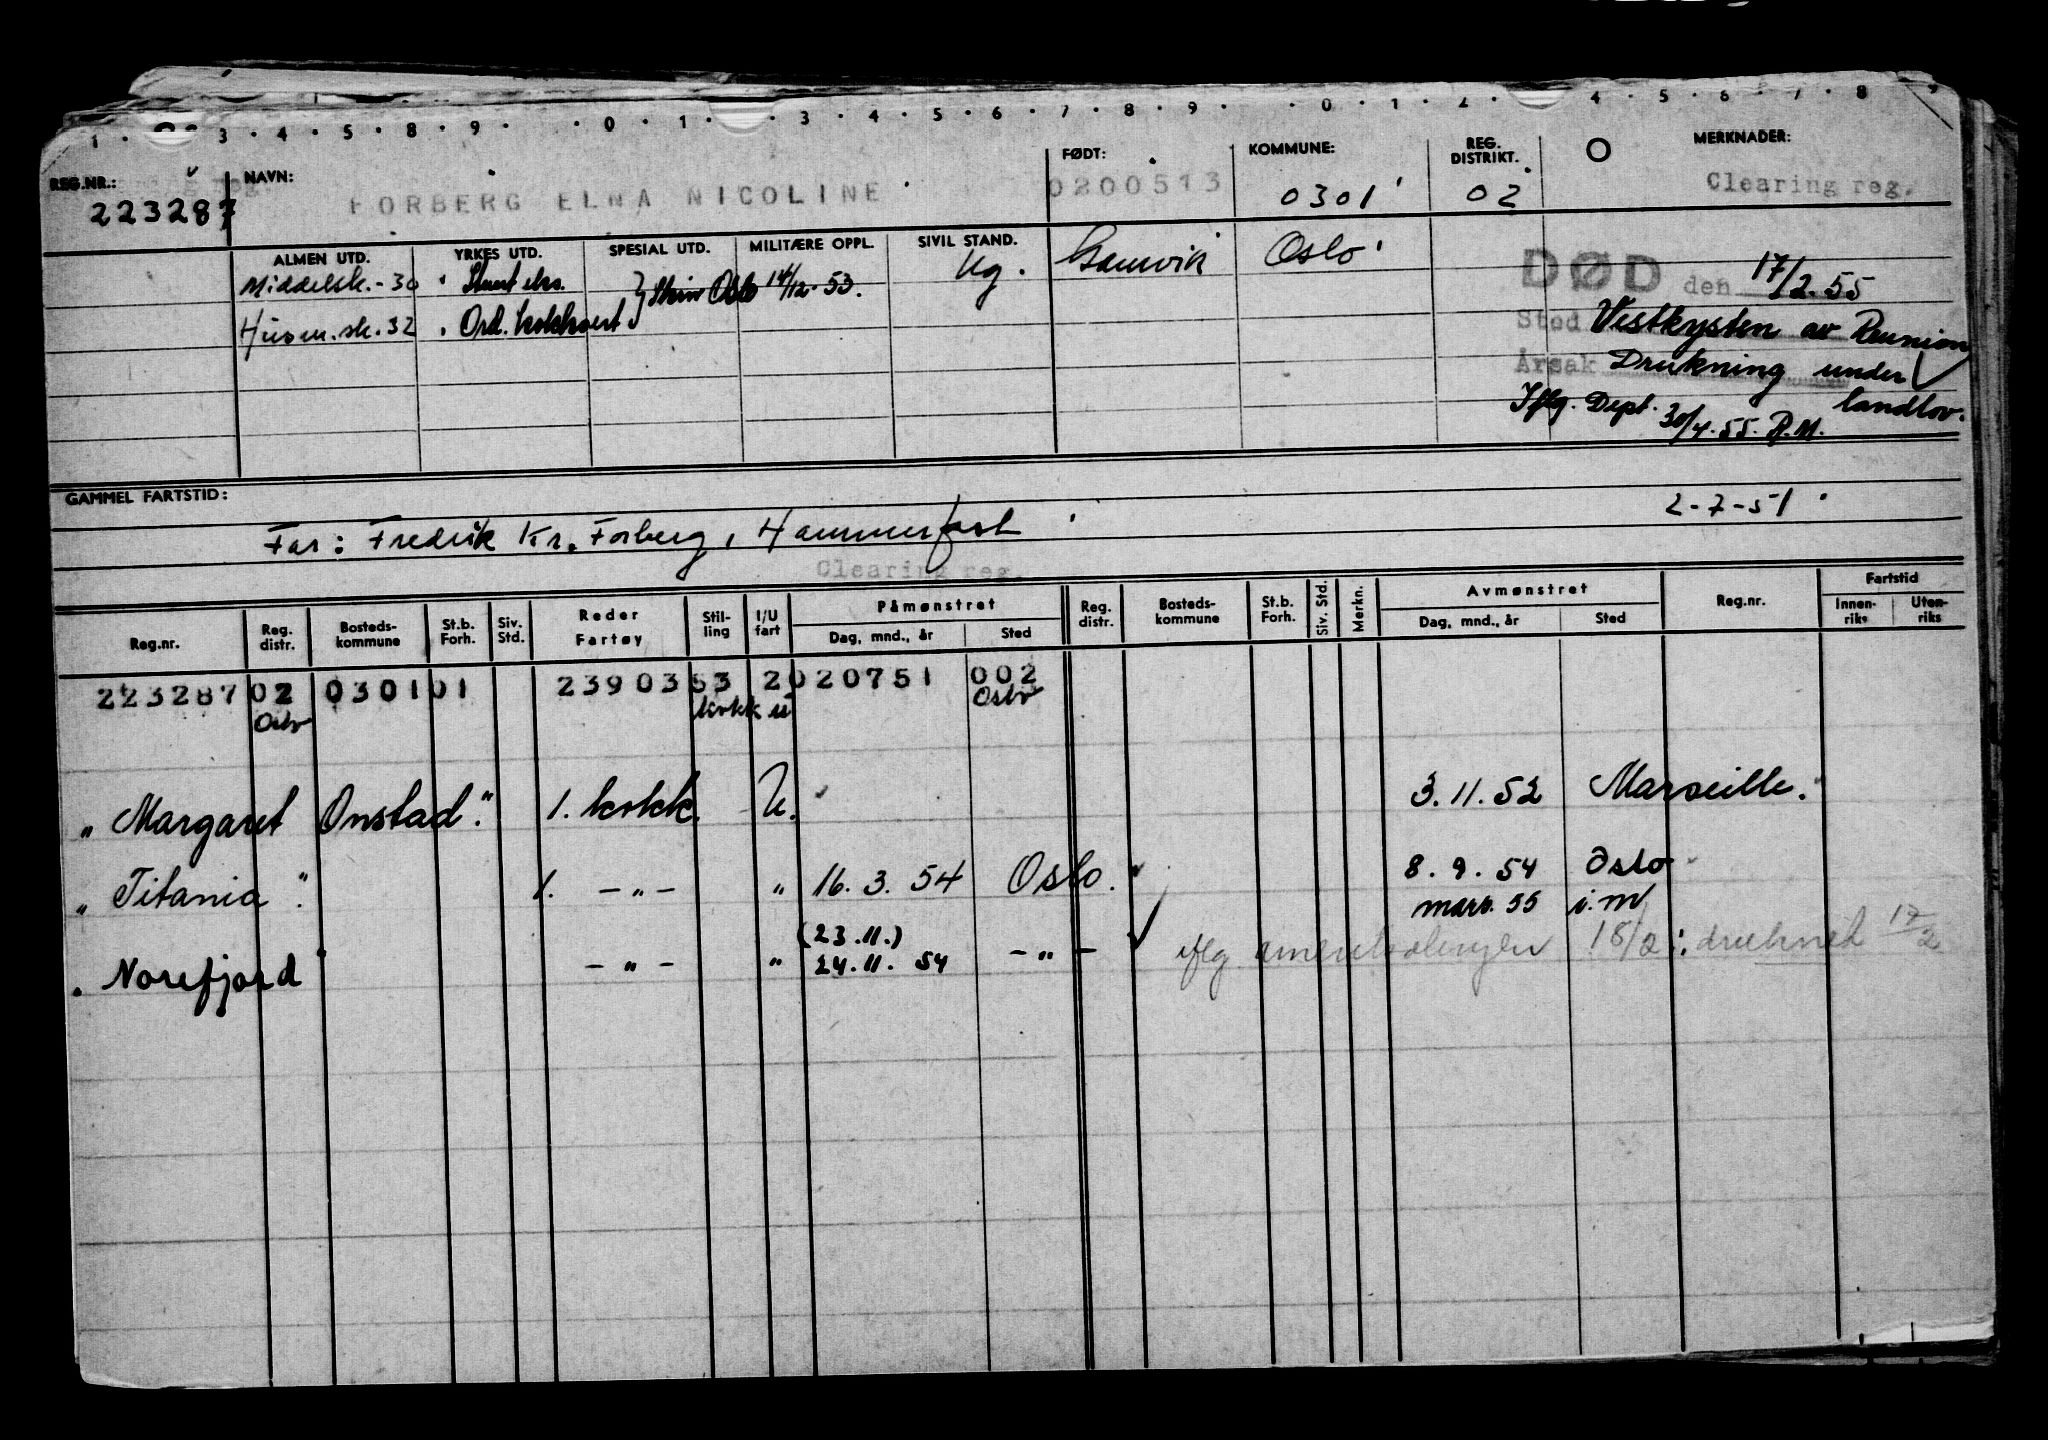 1 . 3 . 4 . 5 . 8 . 9 . . 0 . 1 . . 3 . 4 . 5 . 6 . 7 . 8 . 9 . . 0 . 1 . 2 . 4 . 5 . 6 . 7 . 8 9
REG.NR.: NAVN: FØDT: KOMMUNE: REG. DISTRIKT. MERKNADER:
223287 FORBERG ELNA NICOLINE 0200513 0301 02 Clearing reg.
ALMEN UTD. YRKES UTD. SPESIAL UTD. MILITÆRE OPPL. SIVIL STAND. Gamvik Oslo
Middelsk.-30 Stuert eks. } Skriv Oslo 14/12-53. Ug. DØD den 17/2.55
Husm.sk.32 Ord. kokkcert Sted Vestkysten av Reunion
Årsak Drukning under
landlov.
Iflg. Dept. 30/4.55. R.M.
GAMMEL FARTSTID: 2-7-51
Far: Fredrik Kr. Forberg, Hammerfest
Clearing reg.
Reg.nr. Reg. distr. Bosteds-kommune St.b. Forh. Siv. Std. Reder Fartøy Stil-ling I/U fart Påmønstret Dag, mnd., år Sted Reg. distr. Bosteds-kommune St.b. Forh. Siv. Std. Merkn. Avmønstret Dag, mnd., år Sted Reg.nr. Fartstid Innen-riks Uten-riks
223287 02 0301 01 2390353 2 020751 002
Oslo kokk u Oslo
"Margaret Onstad". 1. kokk. U. 3.11.52 Marseille.
"Titania". 1. -"- " 16.3.54 Oslo. 8.9.54 Oslo
mars. 55 i.m
(23.11.)
Norefjord -"- " 24.11.54 -"- iflg. 18/2: druknet 17/2